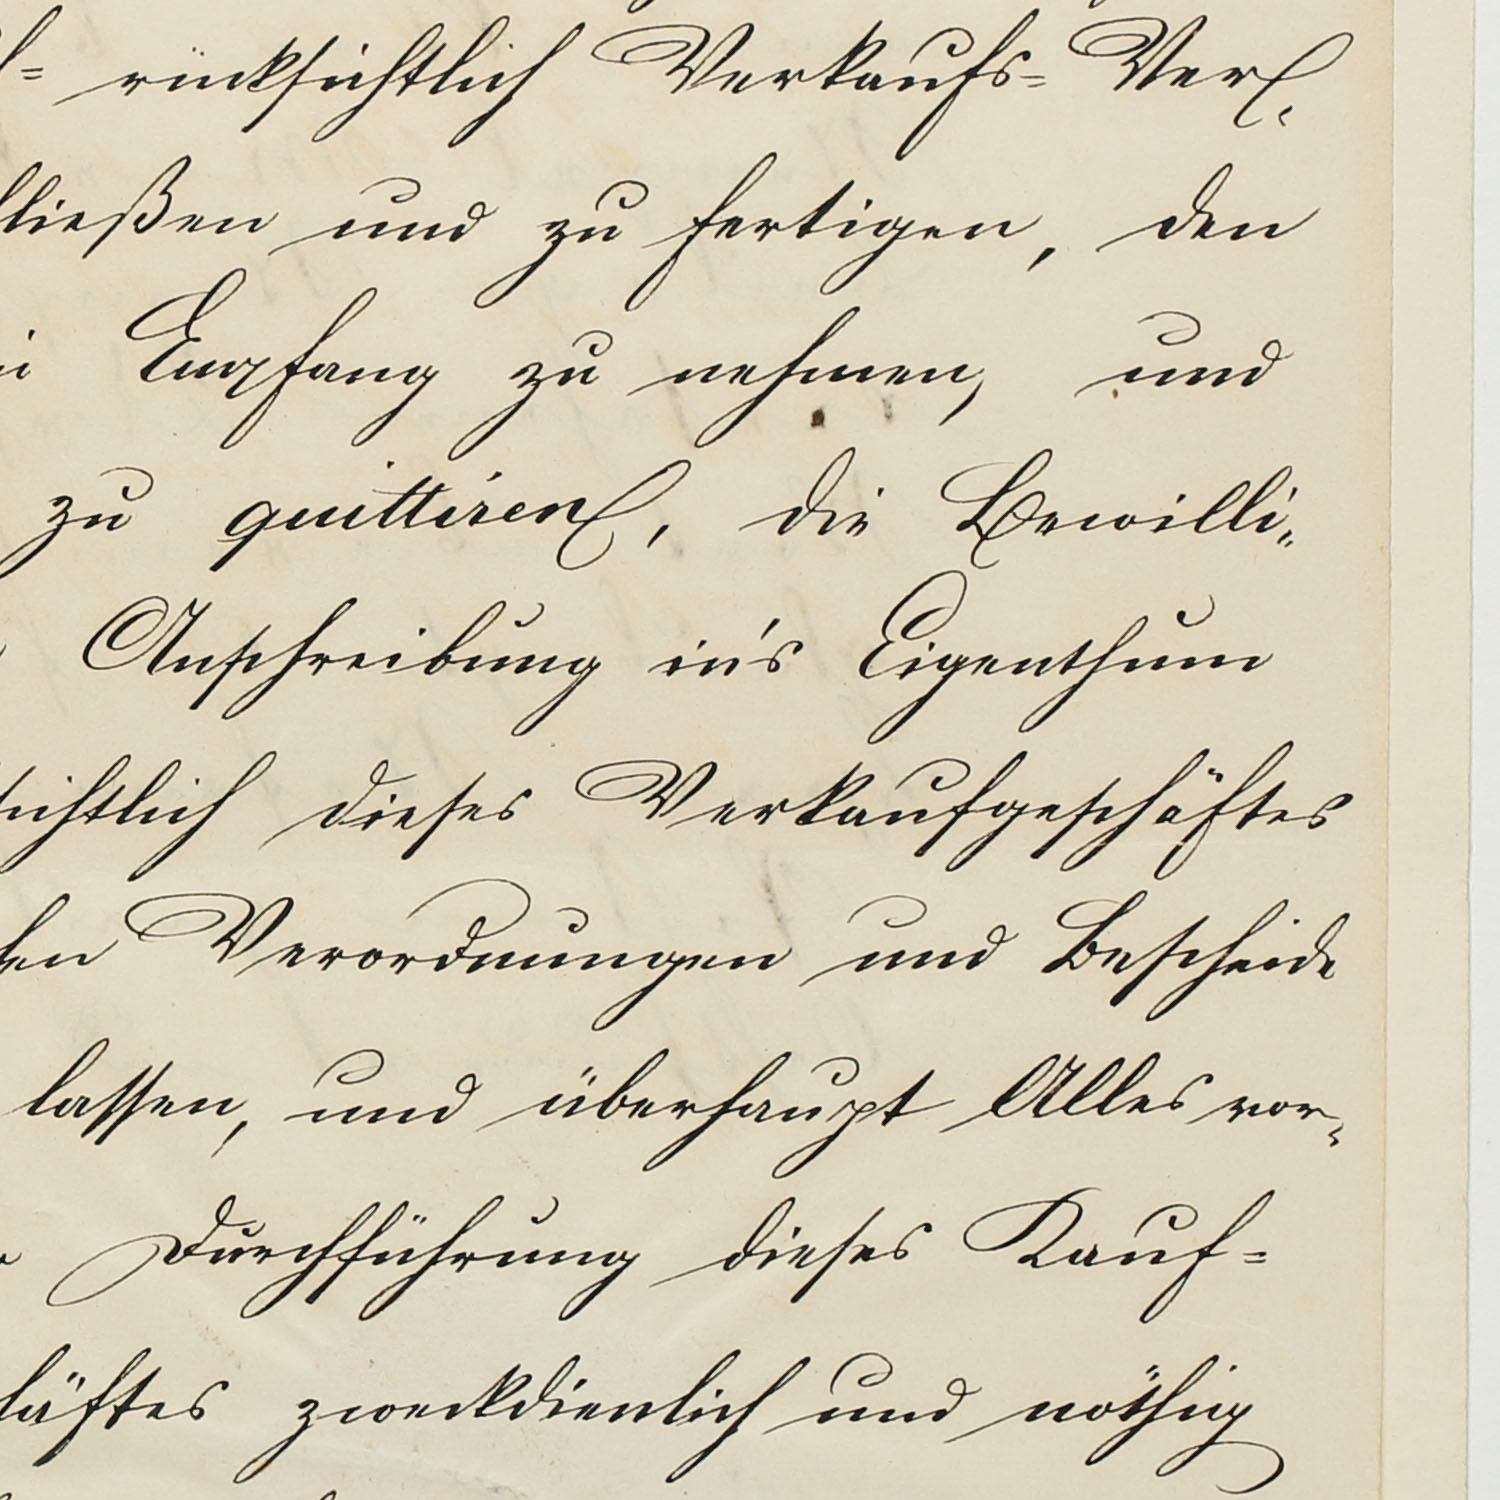 rücksichtlich Verkaufs= Ver.
ließen und zu fertigen, den
Empfang zu nehmen, und
zu quittiren, die Bewilli„
Anschreibung in's Eigenthum
sichtlich dieses Verkaufgeschäftes
Verordnungen und Bescheide
lassen, und überhaupt Alles vor„
Durchführung dieses Kauf=
häftes zweckdienlich und nöthig